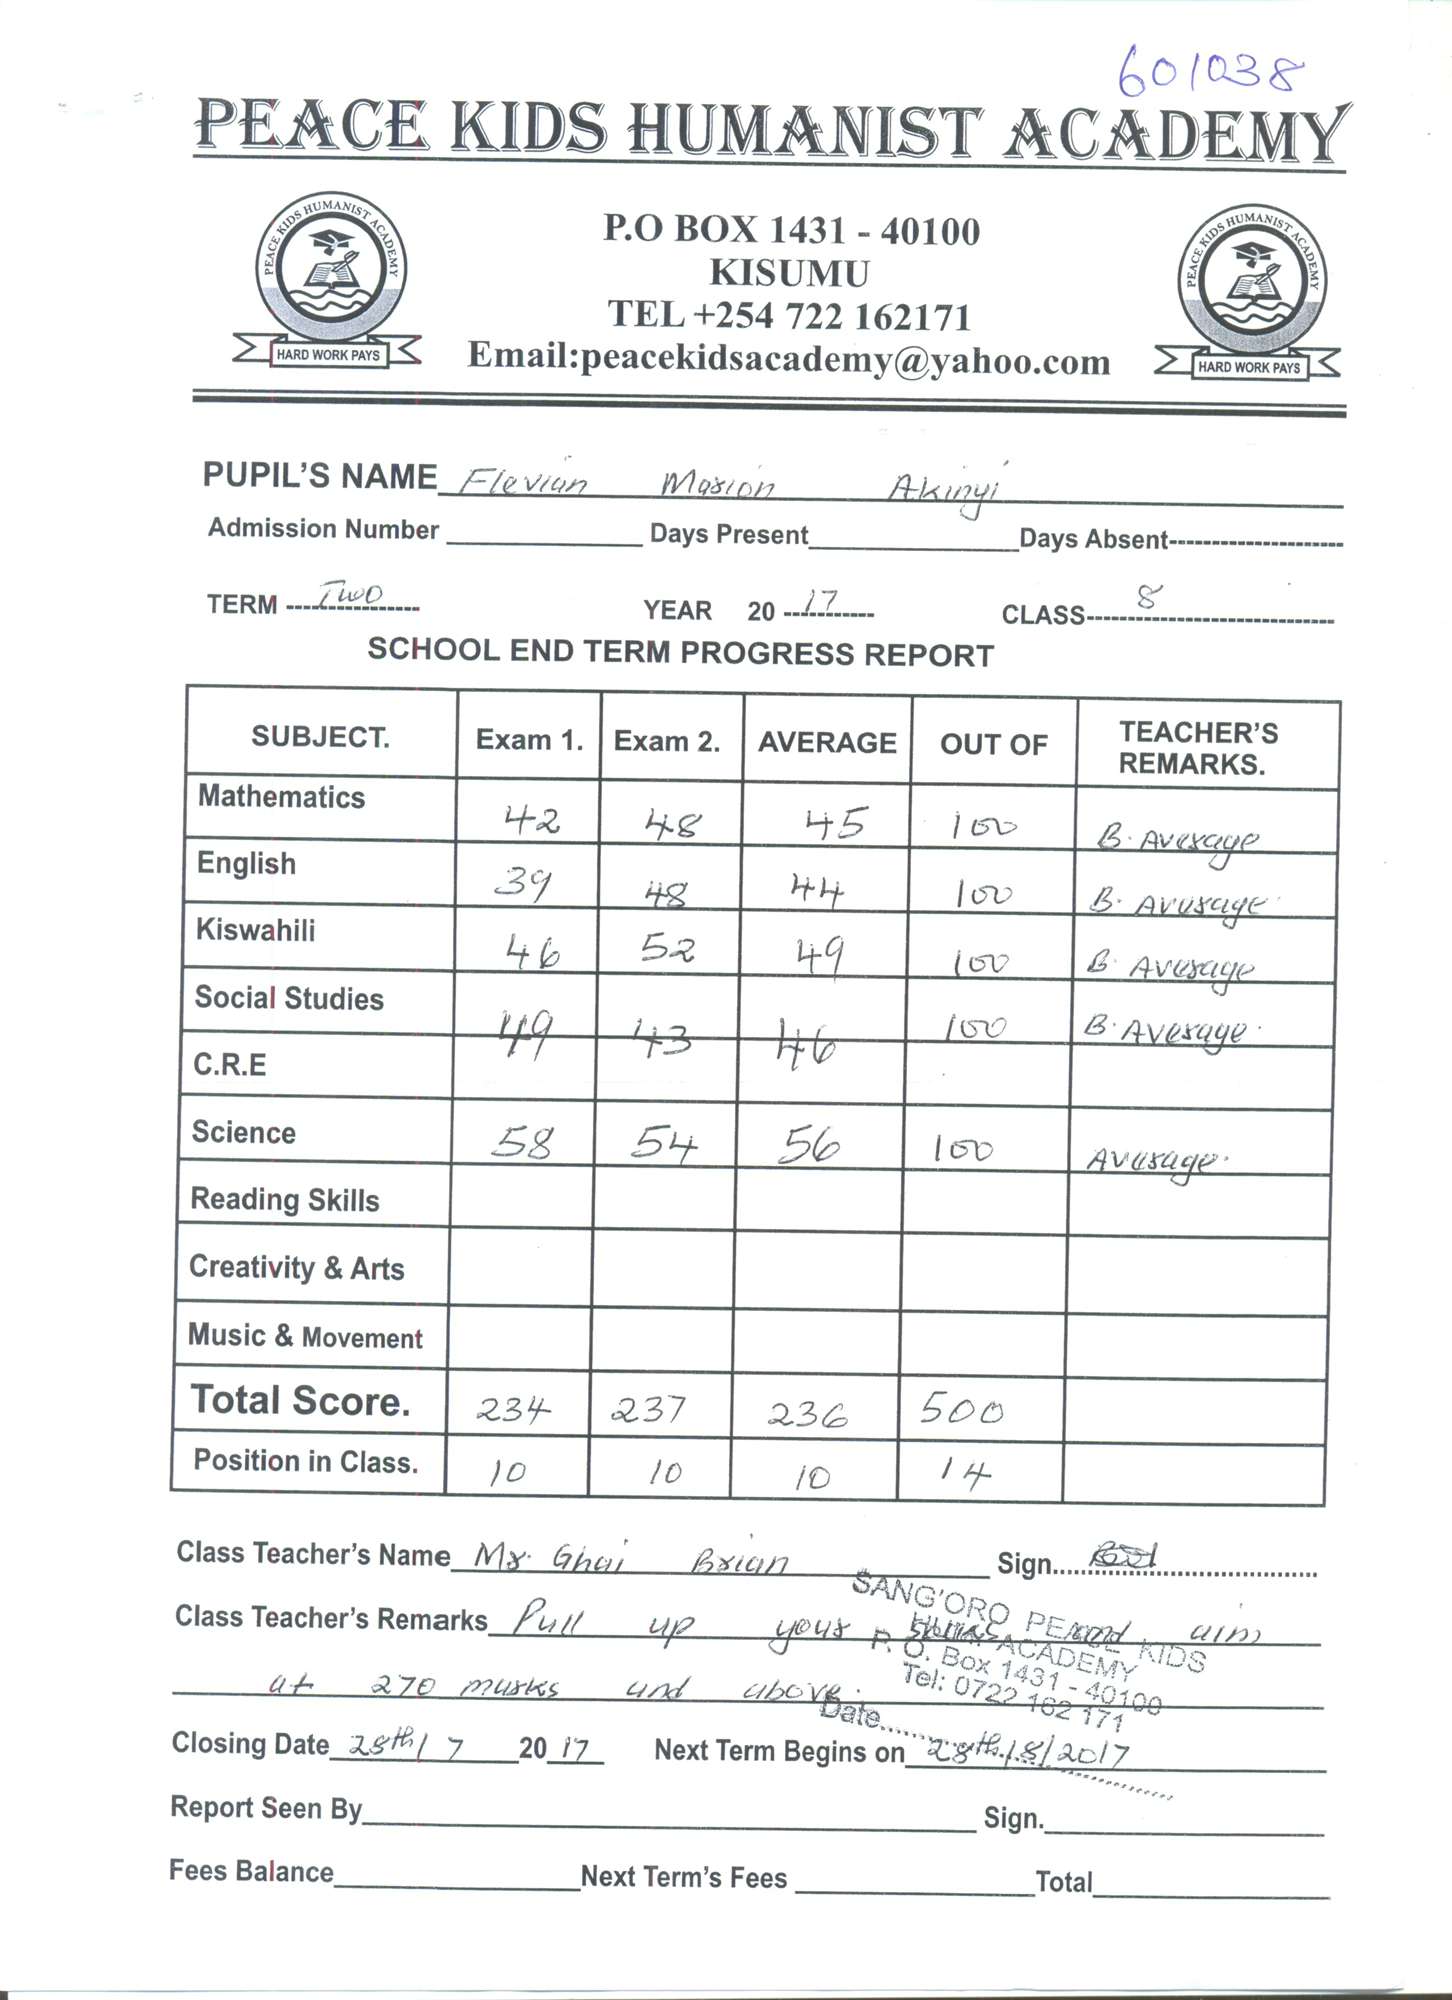 601038
PEACE KIDS HUMANIST ACADEMY
PEACE KIDS HUMANIST ACADEMY
HARD WORK PAYS
P.O BOX 1431 - 40100
KISUMU
TEL +254 722 162171
Email:peacekidsacademy@yahoo.com
PEACE KIDS HUMANIST ACADEMY
HARD WORK PAYS
PUPIL'S NAME Flevian Marion Akinyi
Admission Number Days Present Days Absent
TERM Two YEAR 20 17 CLASS 8
SCHOOL END TERM PROGRESS REPORT
SUBJECT. Exam 1. Exam 2. AVERAGE OUT OF TEACHER'S REMARKS.
Mathematics 42 48 45 100 B. Average
English 39 48 44 100 B. Average
Kiswahili 46 52 49 100 B. Average
Social Studies 49 43 46 100 B. Average
C.R.E
Science 58 54 56 100 Average.
Reading Skills
Creativity & Arts
Music & Movement
Total Score. 234 237 236 500
Position in Class. 10 10 10 14
Class Teacher's Name Mr. Ghai Brian Sign.
Class Teacher's Remarks Pull up your and aim
at 270 marks and above.
SANG'ORO PEACE KIDS
ACADEMY
P. O. Box 1431 - 40100
Tel: 0722 162 171
Date
Closing Date 28th/7 20 17 Next Term Begins on 28th/8/2017
Report Seen By Sign.
Fees Balance Next Term's Fees Total